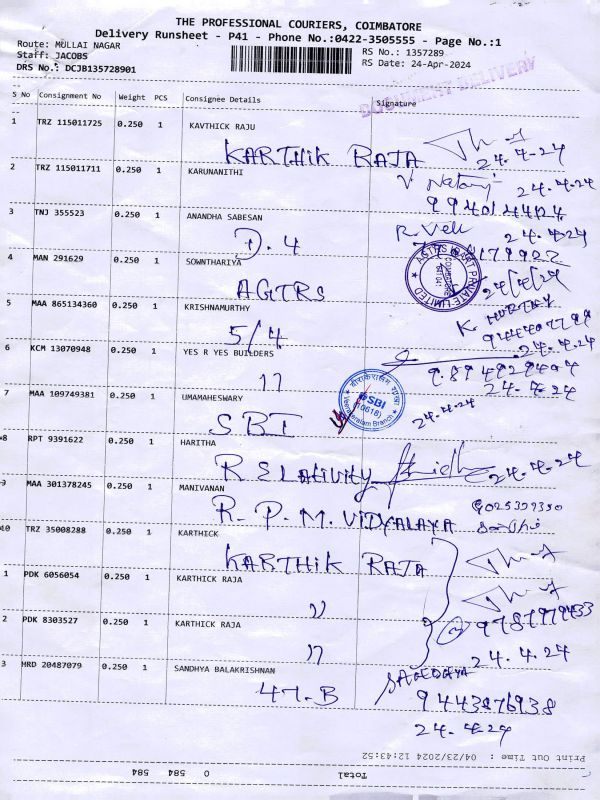 THE PROFESSIONAL COURIERS, COIMBATORE
Delivery Runsheet - P41 - Phone No.:0422-3505555 - Page No.:1
Route: MULLAI NAGAR
RS No.: 1357289
Staff: JACOBS
RS Date: 24-Apr-2024
DRS No.: DCJB135728901
DOCUMENT DELIVERY
S No Consignment No Weight PCS Consignee Details Signature
1 TRZ 115011725 0.250 1 KAVTHICK RAJU
KARTHIK RAJA
24.4.24
2 TRZ 115011711 0.250 1 KARUNANITHI
24.4.24
3 TNJ 355523 0.250 1 ANANDHA SABESAN
R. Vell
24.4.24
D.4
4 MAN 291629 0.250 1 SOWNTHARIYA
AGTRS
24/4/24
5 MAA 865134360 0.250 1 KRISHNAMURTHY
K. MURTHY
5/4
24.4.24
6 KCM 13070948 0.250 1 YES R YES BUILDERS
11
24.4.24
SBI
(10618)
Branch
7 MAA 109749381 0.250 1 UMAMAHESWARY
24.4.24
SBI
8 RPT 9391622 0.250 1 HARITHA
24.4.24
9 MAA 301378245 0.250 1 MANIVANAN
R. P. M. VIDYALAYA
10 TRZ 35008288 0.250 1 KARTHICK
KARTHIK RAJA
1 PDK 6056054 0.250 1 KARTHICK RAJA
11
2 PDK 8303527 0.250 1 KARTHICK RAJA
11
24.4.24
3 HRD 20487079 0.250 1 SANDHYA BALAKRISHNAN
47-B
9443876938
24.4.24
Print Out Time : 04/23/2024 12:43:52
Total 0 584 584